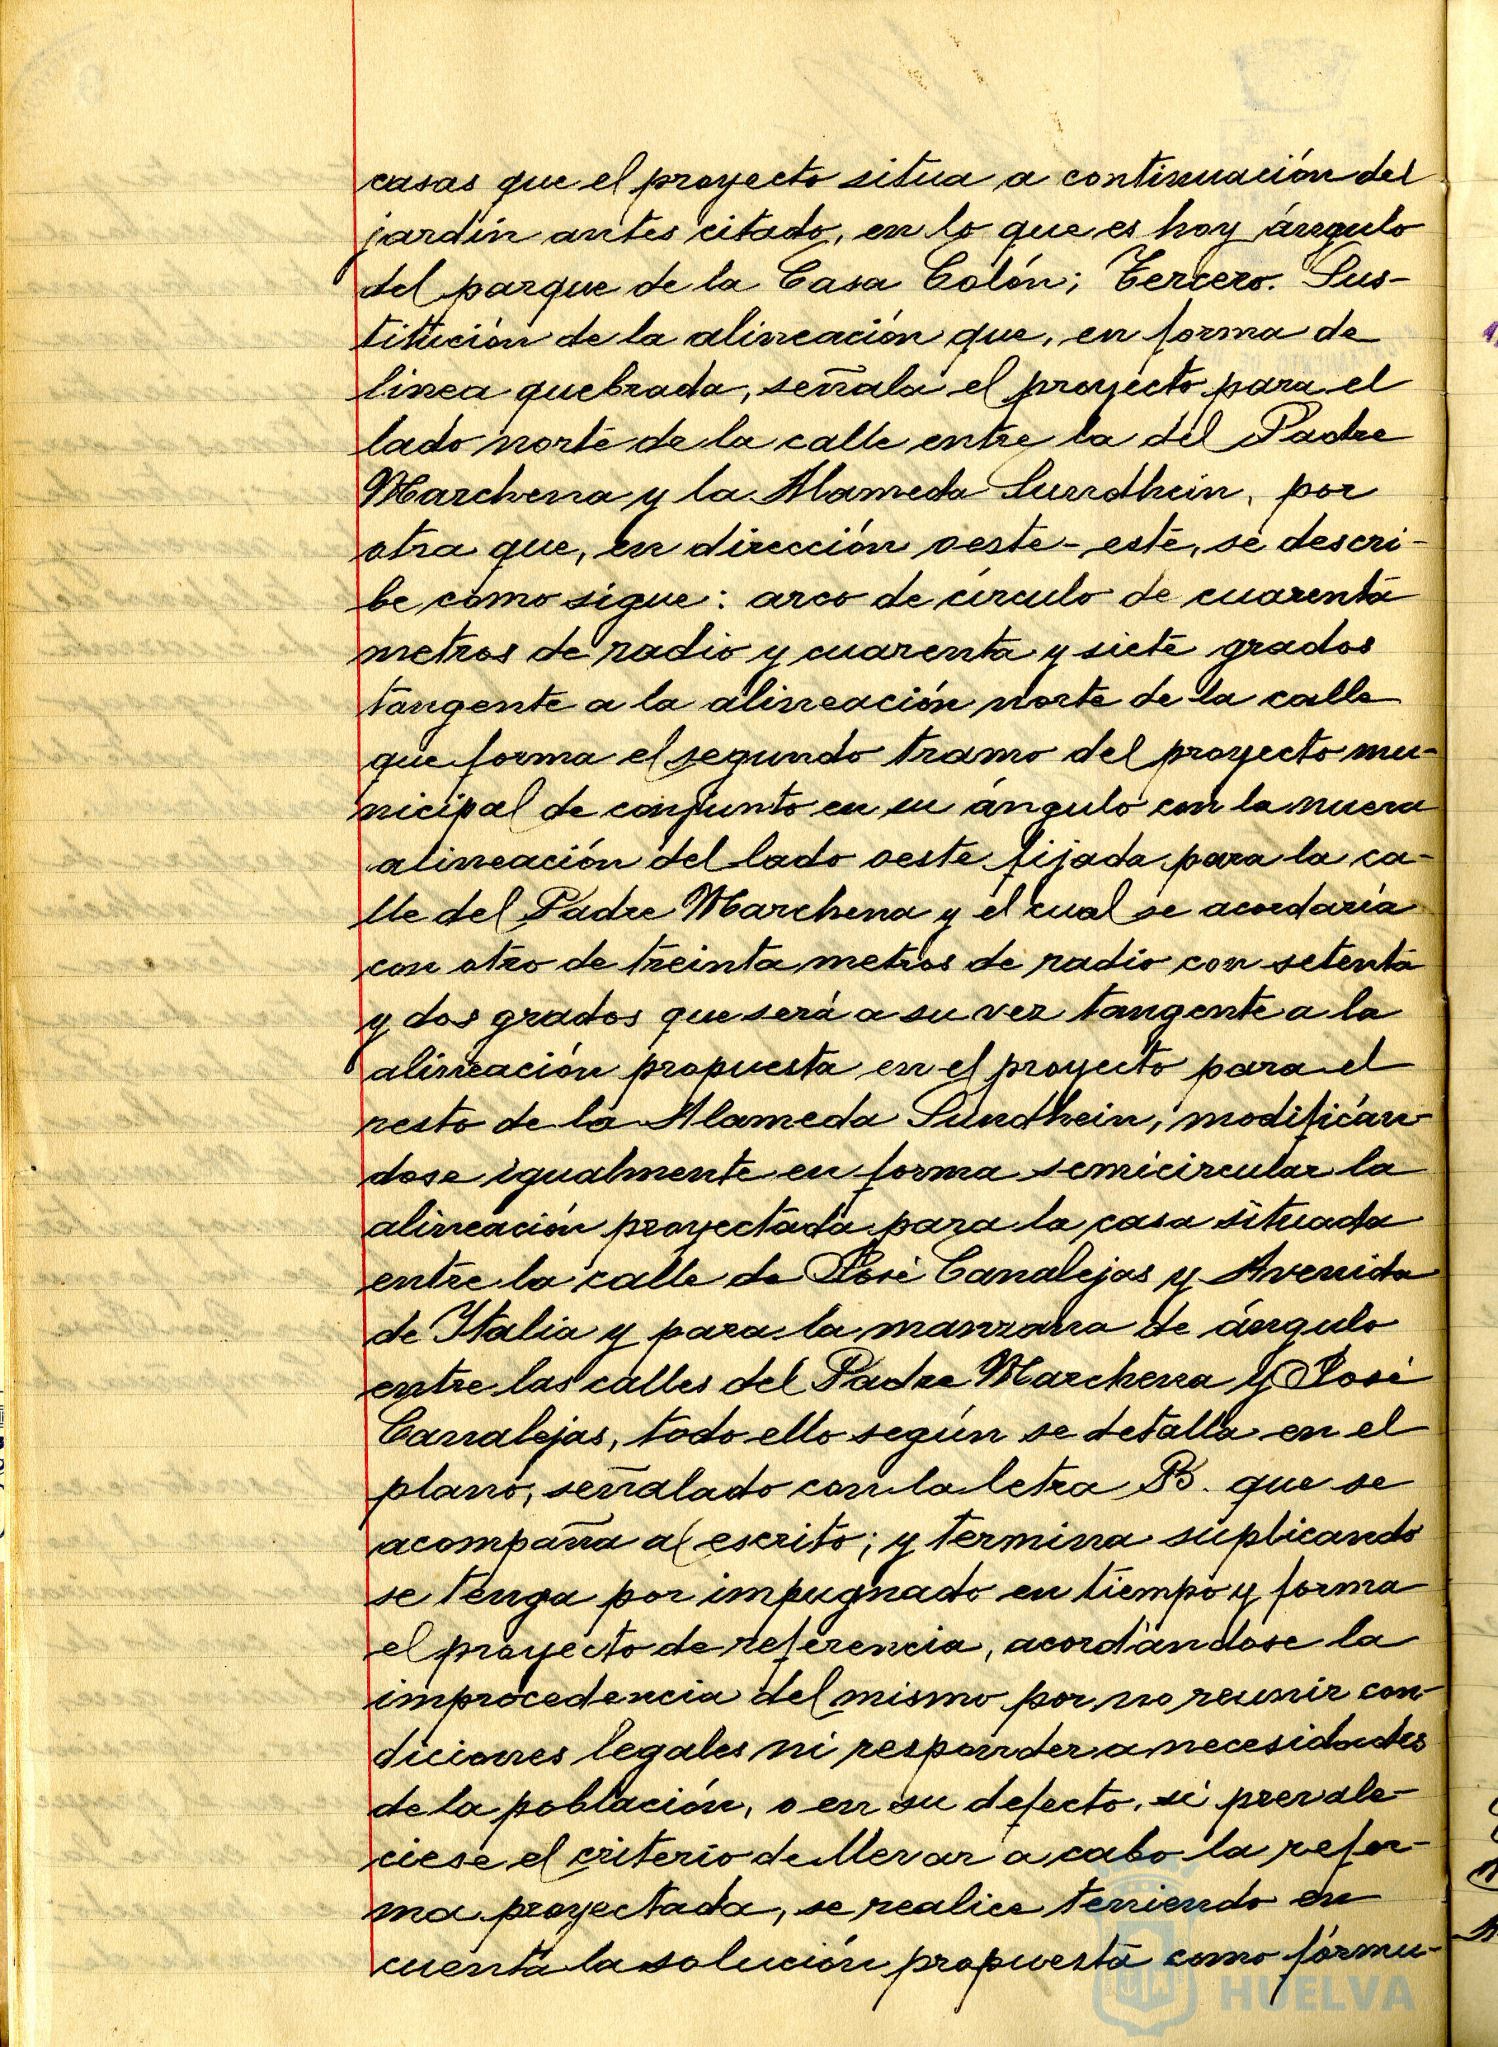 casas que el proyecto situa a continuación del
jardín antes citado, en lo que es hoy ángulo
del parque de la Casa Colón; Tercero. Sus-
titución de la alineación que, en forma de
linea quebrada, señala el proyecto para el
lado norte de la calle entre la del Padre
Marchena y la Alameda Sundhein, por
otra que, en dirección oeste-este, se descri-
be como sigue: arco de círculo de cuarenta
metros de radio y cuarenta y siete grados
tangente a la alineación norte de la calle
que forma el segundo tramo del proyecto mu-
nicipal de conjunto en su ángulo con la nueva
alineación del lado oeste fijada para la ca-
lle del Padre Marchena y el cual se acordaría
con otro de treinta metros de radio con setenta
y dos grados que será a su vez tangente a la
alineación propuesta en el proyecto para el
resto de la Alameda Sundhein; modificán-
dose igualmente en forma semicircular la
alineación proyectada para la casa situada
entre la calle de José Canalejas y Avenida
de Italia y para la manzana de ángulo
entre las calles del Padre Marchena y José
Canalejas, todo ello según se detalla en el
plano, señalado con la letra B. que se
acompaña al escrito; y termina suplicando
se tenga por impugnado en tiempo y forma
el proyecto de referencia, acordándose la
improcedencia del mismo por no reunir con-
diciones legales ni responder a necesidades
de la población, o en su defecto, si prevale-
ciese el criterio de llevar a cabo la refor-
ma proyectada, se realice teniendo en
cuenta la solución propuesta como fórmu-
HUELVA